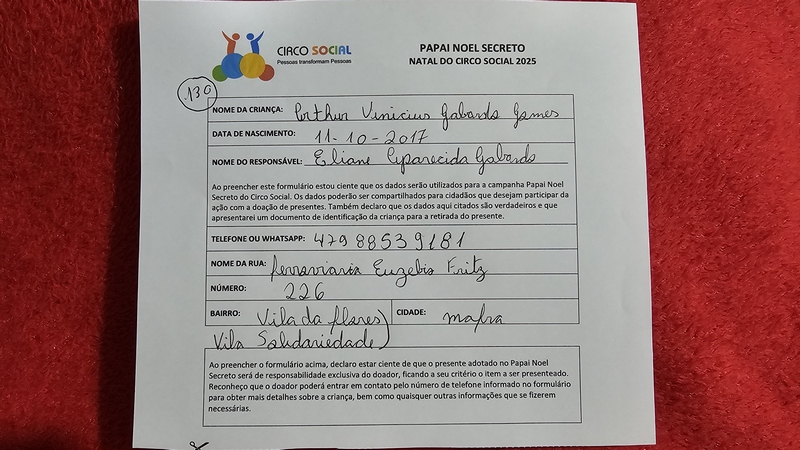 CIRCO SOCIAL
Pessoas transformam Pessoas
PAPAI NOEL SECRETO
NATAL DO CIRCO SOCIAL 2025
130
NOME DA CRIANÇA: Arthur Vinicius Gabardo Gomes
DATA DE NASCIMENTO: 11-10-2017
NOME DO RESPONSÁVEL: Eliane Aparecida Gabardo
Ao preencher este formulário estou ciente que os dados serão utilizados para a campanha Papai Noel
Secreto do Circo Social. Os dados poderão ser compartilhados para cidadãos que desejam participar da
ação com a doação de presentes. Também declaro que os dados aqui citados são verdadeiros e que
apresentarei um documento de identificação da criança para a retirada do presente.
TELEFONE OU WHATSAPP: 47988539181
NOME DA RUA: ferroviaria Euzebio Fritz
NÚMERO: 226
BAIRRO: Vila da flores) CIDADE: mafra
Vila Solidariedade)
Ao preencher o formulário acima, declaro estar ciente de que o presente adotado no Papai Noel
Secreto será de responsabilidade exclusiva do doador, ficando a seu critério o item a ser presenteado.
Reconheço que o doador poderá entrar em contato pelo número de telefone informado no formulário
para obter mais detalhes sobre a criança, bem como quaisquer outras informações que se fizerem
necessárias.